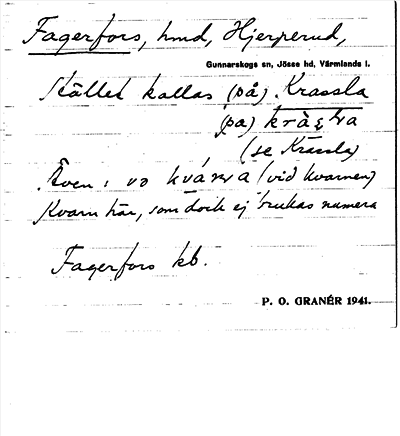 Fagerfors, hmd, Hjerperud,
Gunnarskogs sn, Jösse hd, Värmlands l.
Stället kallas (på) Krassla
(på)
(se Krassla)
Även: vo kvá (vid kvarnen)
Kvarn här, som dock ej brukas numera
Fagerfors kb.
P. O. GRANÉR 1941.